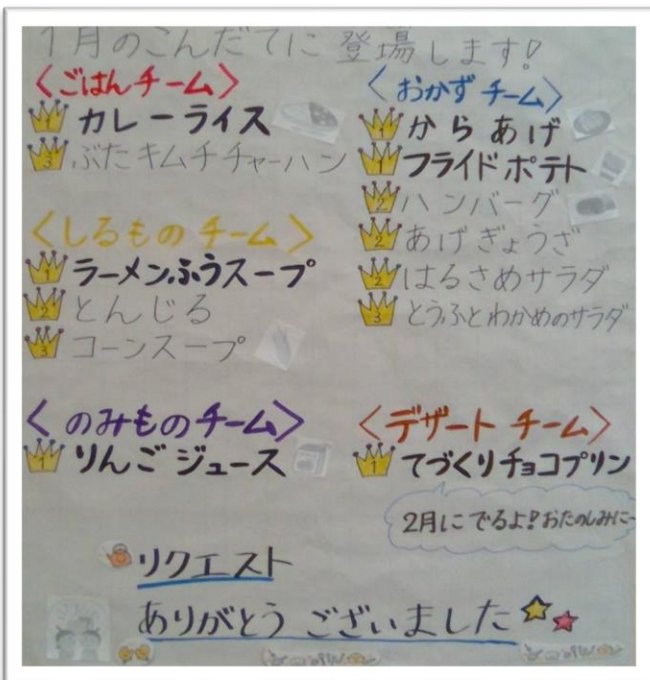 1月のこんだてに登場します!
〈ごはんチーム〉
1 カレーライス
3 ぶたキムチチャーハン
〈しるものチーム〉
1 ラーメンふうスープ
2 とんじる
3 コーンスープ
〈おかずチーム〉
1 からあげ
1 フライドポテト
2 ハンバーグ
2 あげぎょうざ
2 はるさめサラダ
3 とうふとわかめのサラダ
〈のみものチーム〉
1 りんごジュース
〈デザートチーム〉
1 てづくりチョコプリン
2月にでるよ!おたのしみに~
リクエスト
ありがとうございました